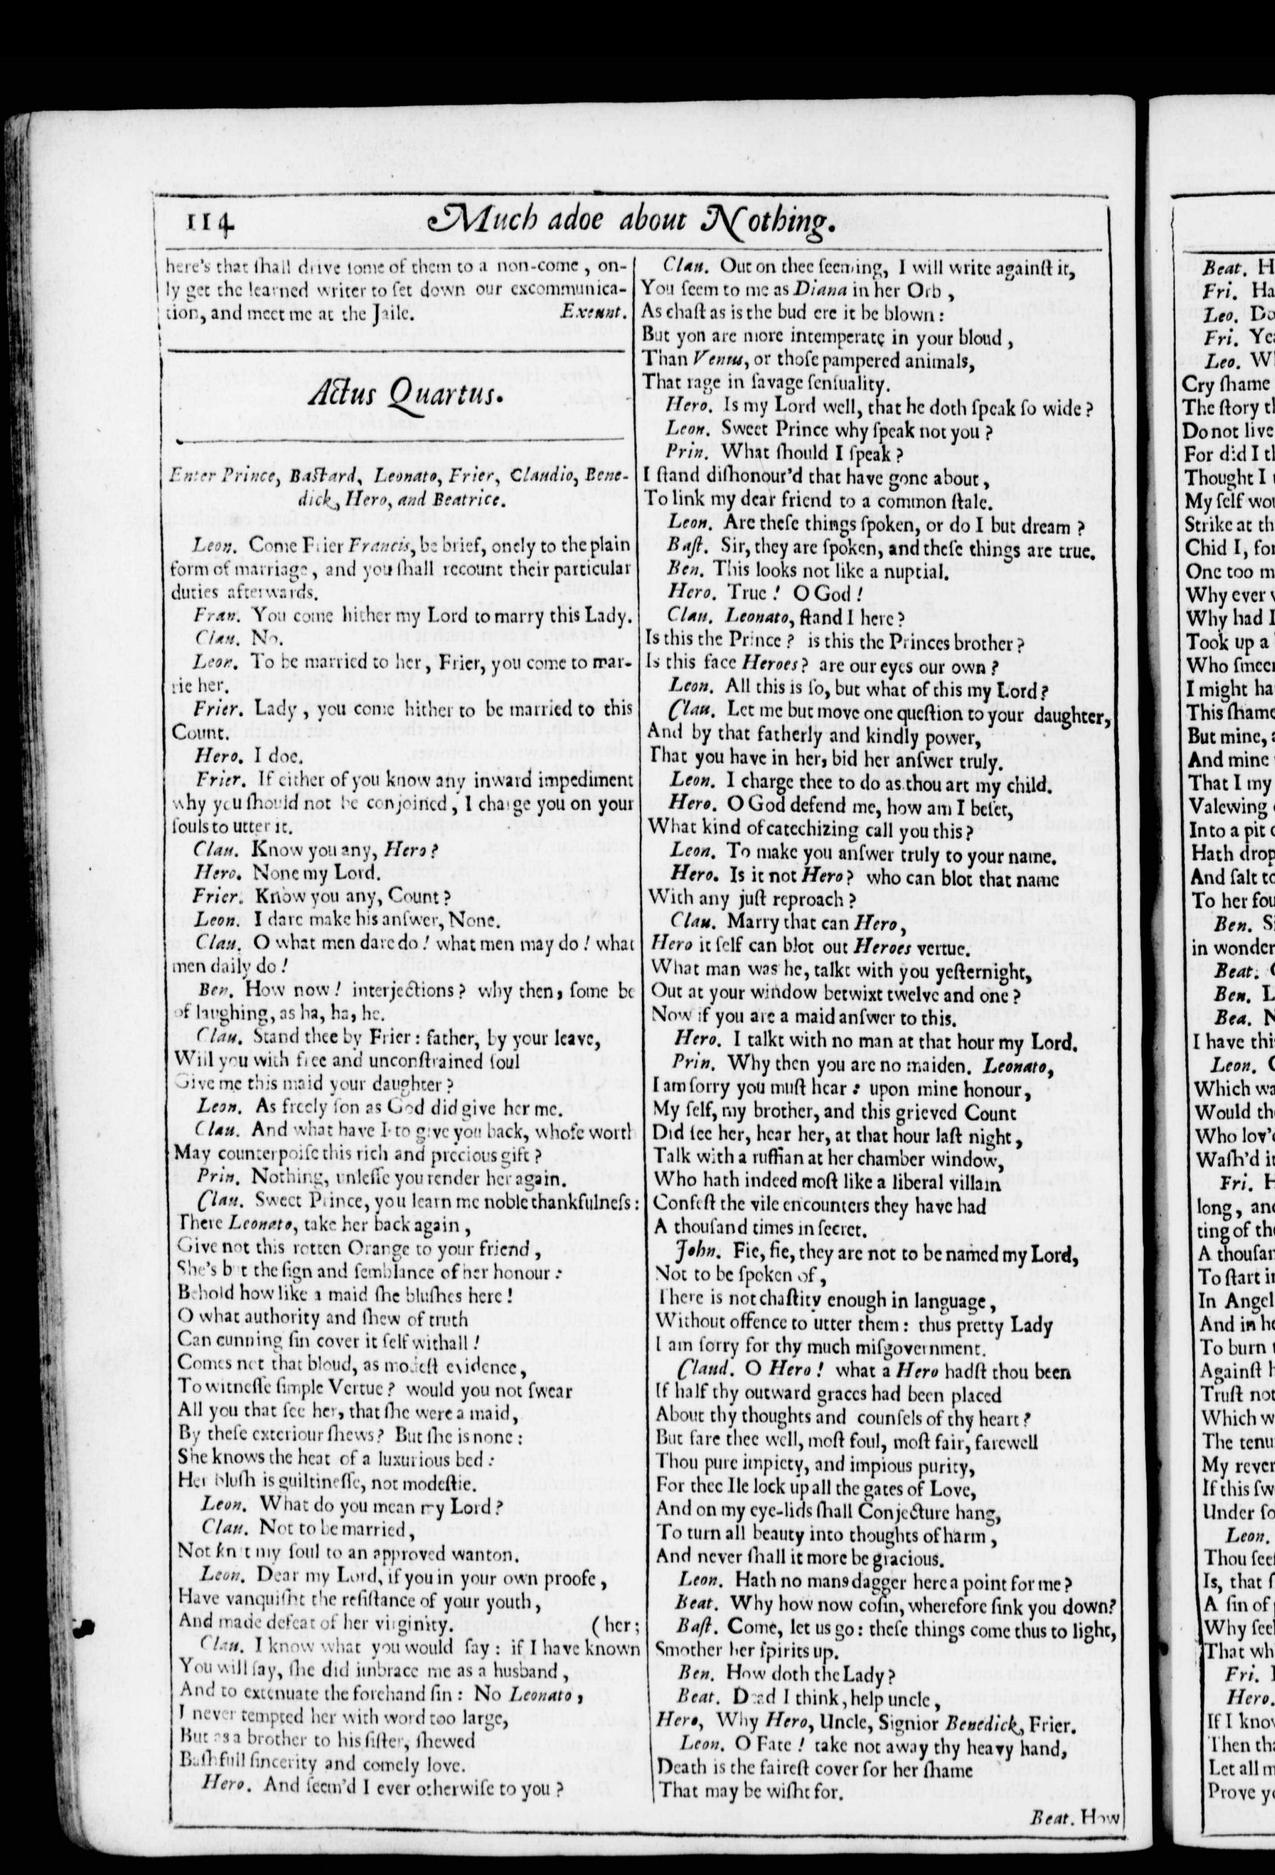 114
Much adoe about Nothing.
here's that ſhall drive ſome of them to a non-come, on-
ly get the learned writer to ſet down our excommunica-
tion, and meet me at the Jaile. Exeunt.
Actus Quartus.
Enter Prince, Baſtard, Leonato, Frier, Claudio, Bene-
dick, Hero, and Beatrice.
Leon. Come Frier Francis, be brief, onely to the plain
form of marriage, and you ſhall recount their particular
duties afterwards.
Fran. You come hither my Lord to marry this Lady.
Clau. No.
Leon. To be married to her, Frier, you come to mar-
rie her.
Frier. Lady, you come hither to be married to this
Count.
Hero. I doe.
Frier. If either of you know any inward impediment
why you ſhould not be conjoined, I charge you on your
ſouls to utter it.
Clau. Know you any, Hero?
Hero. None my Lord.
Frier. Know you any, Count?
Leon. I dare make his anſwer, None.
Clau. O what men dare do! what men may do! what
men daily do!
Ben. How now! interjections? why then, ſome be
of laughing, as ha, ha, he.
Clau. Stand thee by Frier: father, by your leave,
Will you with free and unconſtrained ſoul
Give me this maid your daughter?
Leon. As freely ſon as God did give her me.
Clau. And what have I to give you back, whoſe worth
May counterpoiſe this rich and precious gift?
Prin. Nothing, unleſſe you render her again.
Clau. Sweet Prince, you learn me noble thankfulneſs:
There Leonato, take her back again,
Give not this rotten Orange to your friend,
She's but the ſign and ſemblance of her honour:
Behold how like a maid ſhe bluſhes here!
O what authority and ſhew of truth
Can cunning ſin cover it ſelf withall!
Comes not that bloud, as modeſt evidence,
To witneſſe ſimple Vertue? would you not ſwear
All you that ſee her, that ſhe were a maid,
By theſe exteriour ſhews? But ſhe is none:
She knows the heat of a luxurious bed:
Her bluſh is guiltineſſe, not modeſtie.
Leon. What do you mean my Lord?
Clau. Not to be married,
Not knit my ſoul to an approved wanton.
Leon. Dear my Lord, if you in your own proofe,
Have vanquiſht the reſiſtance of your youth,
And made defeat of her virginity. (her;
Clau. I know what you would ſay: if I have known
You will ſay, ſhe did imbrace me as a husband,
And to extenuate the forehand ſin: No Leonato,
I never tempted her with word too large,
But as a brother to his ſiſter, ſhewed
Baſhfull ſincerity and comely love.
Hero. And ſeem'd I ever otherwiſe to you?
Clau. Out on thee ſeeming, I will write againſt it,
You ſeem to me as Diana in her Orb,
As chaſt as is the bud ere it be blown:
But yon are more intemperate in your bloud,
Than Venus, or thoſe pampered animals,
That rage in ſavage ſenſuality.
Hero. Is my Lord well, that he doth ſpeak ſo wide?
Leon. Sweet Prince why ſpeak not you?
Prin. What ſhould I ſpeak?
I ſtand diſhonour'd that have gone about,
To link my dear friend to a common ſtale.
Leon. Are theſe things ſpoken, or do I but dream?
Baſt. Sir, they are ſpoken, and theſe things are true.
Ben. This looks not like a nuptial.
Hero. True! O God!
Clau. Leonato, ſtand I here?
Is this the Prince? is this the Princes brother?
Is this face Heroes? are our eyes our own?
Leon. All this is ſo, but what of this my Lord?
Clau. Let me but move one queſtion to your daughter,
And by that fatherly and kindly power,
That you have in her, bid her anſwer truly.
Leon. I charge thee to do as thou art my child.
Hero. O God defend me, how am I beſet,
What kind of catechizing call you this?
Leon. To make you anſwer truly to your name.
Hero. Is it not Hero? who can blot that name
With any juſt reproach?
Clau. Marry that can Hero,
Hero it ſelf can blot out Heroes vertue.
What man was he, talkt with you yeſternight,
Out at your window betwixt twelve and one?
Now if you are a maid anſwer to this.
Hero. I talkt with no man at that hour my Lord.
Prin. Why then you are no maiden. Leonato,
I am ſorry you muſt hear: upon mine honour,
My ſelf, my brother, and this grieved Count
Did ſee her, hear her, at that hour laſt night,
Talk with a ruffian at her chamber window,
Who hath indeed moſt like a liberal villain
Confeſt the vile encounters they have had
A thouſand times in ſecret.
John. Fie, fie, they are not to be named my Lord,
Not to be ſpoken of,
There is not chaſtity enough in language,
Without offence to utter them: thus pretty Lady
I am ſorry for thy much miſgovernment.
Claud. O Hero! what a Hero hadſt thou been
If half thy outward graces had been placed
About thy thoughts and counſels of thy heart?
But fare thee well, moſt foul, moſt fair, farewell
Thou pure impiety, and impious purity,
For thee Ile lock up all the gates of Love,
And on my eye-lids ſhall Conjecture hang,
To turn all beauty into thoughts of harm,
And never ſhall it more be gracious.
Leon. Hath no mans dagger here a point for me?
Beat. Why how now coſin, wherefore ſink you down?
Baſt. Come, let us go: theſe things come thus to light,
Smother her ſpirits up.
Ben. How doth the Lady?
Beat. Dead I think, help uncle,
Hero, Why Hero, Uncle, Signior Benedick, Frier.
Leon. O Fate! take not away thy heavy hand,
Death is the faireſt cover for her ſhame
That may be wiſht for.
Beat. How
Beat. H
Fri. Ha
Leo. Do
Fri. Ye
Leo. W
Cry ſhame
The ſtory t
Do not live
For did I t
Thought I
My ſelf wo
Strike at th
Chid I, for
One too m
Why ever
Why had I
Took up a
Who ſmee
I might ha
This ſhame
But mine,
And mine
That I my
Valewing
Into a pit
Hath drop
And ſalt to
To her fou
Ben. S
in wonder
Beat.
Ben. L
Bea. N
I have thi
Leon.
Which wa
Would th
Who lov'd
Waſh'd i
Fri. H
long, and
ting of th
A thouſan
To ſtart i
In Angel
And in he
To burn
Againſt h
Truſt not
Which w
The tenu
My rever
If this ſw
Under ſo
Leon.
Thou ſee
Is, that
A ſin of
Why ſee
That wh
Fri.
Hero.
If I kno
Then th
Let all m
Prove y